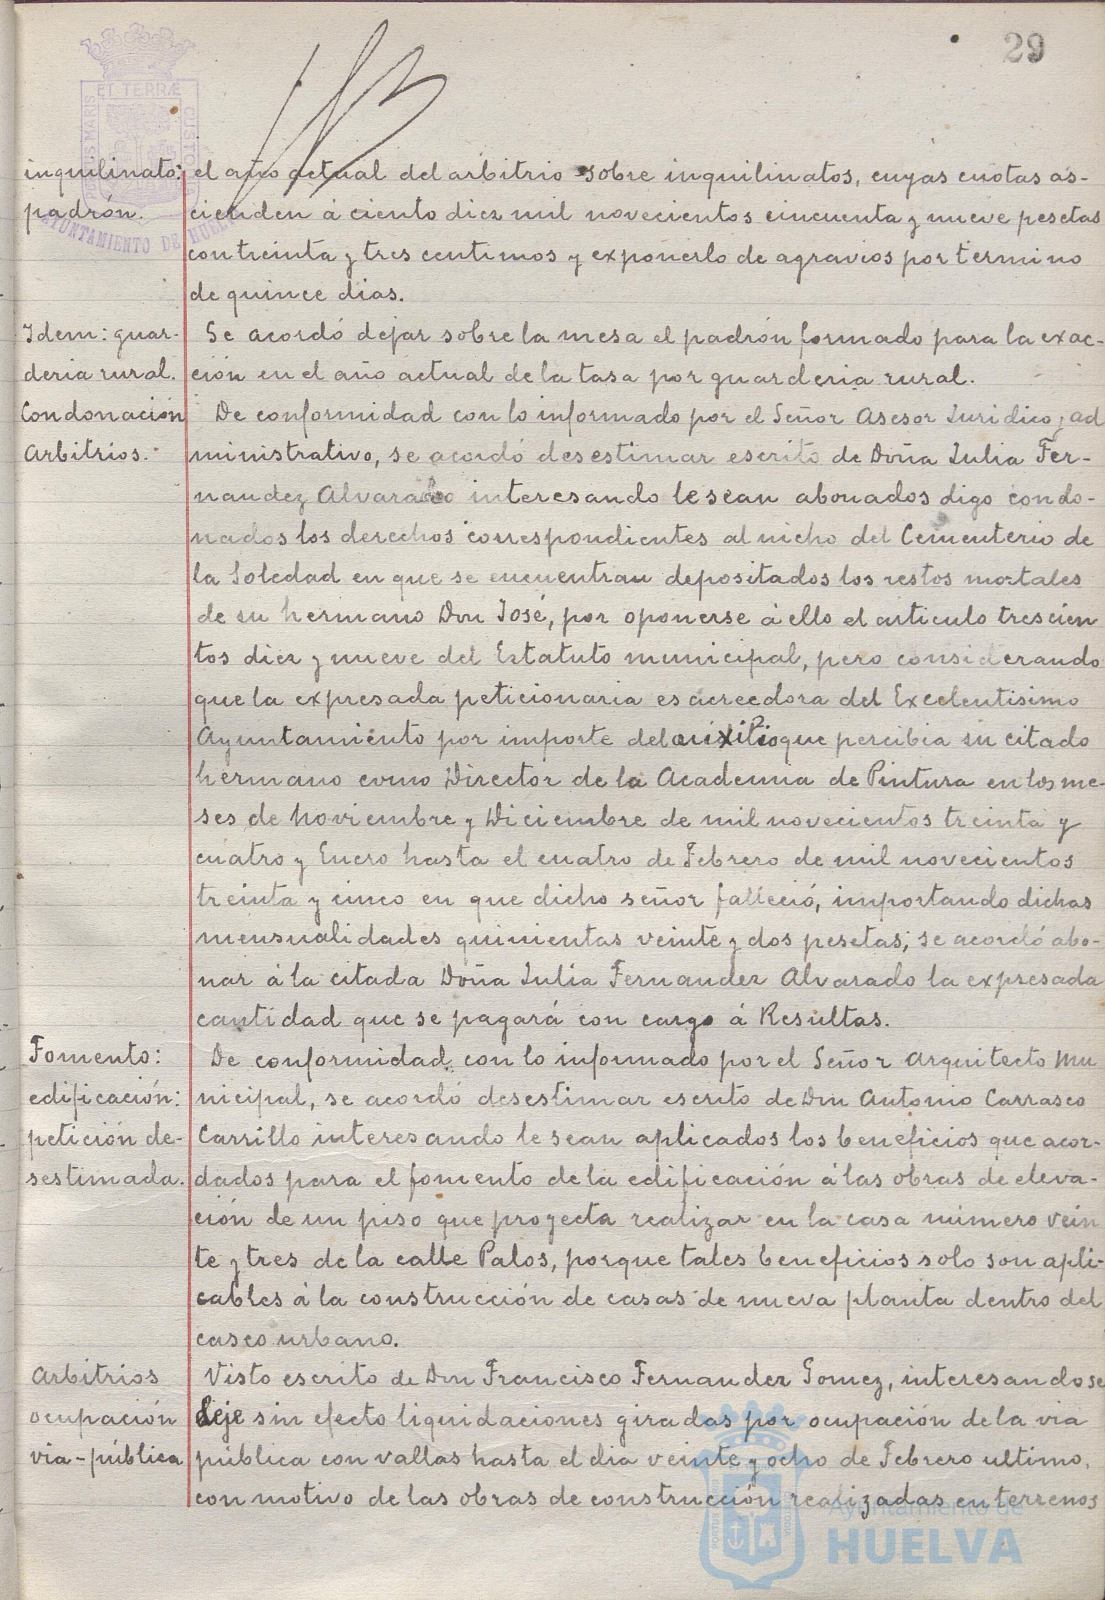 29
ET TERRÆ
AYUNTAMIENTO DE HUELVA
inquilinato: el año actual del arbitrio sobre inquilinatos, cuyas cuotas as-
padrón. cienden á ciento diez mil novecientos cincuenta y nueve pesetas
con treinta y tres centimos y exponerlo de agravios por termino
de quince dias.
Idem: guar- Se acordó dejar sobre la mesa el padrón formado para la exac-
deria rural. ción en el año actual de la tasa por guarderia rural.
Condonación De conformidad con lo informado por el Señor Asesor Juridico, ad
Arbitrios. ministrativo, se acordó desestimar escrito de Doña Julia Fer-
nandez Alvarado interesando le sean abonados digo condo-
nados los derechos correspondientes al nicho del Cementerio de
la Soledad en que se encuentran depositados los restos mortales
de su hermano Don José, por oponerse á ello el articulo trescien
tos diez y nueve del Estatuto municipal, pero considerando
que la expresada peticionaria es acreedora del Excelentisimo
Ayuntamiento por importe del auxilio que percibia su citado
hermano como Director de la Academia de Pintura en los me-
ses de Noviembre y Diciembre de mil novecientos treinta y
cuatro y Enero hasta el cuatro de Febrero de mil novecientos
treinta y cinco en que dicho señor falleció, importando dichas
mensualidades quinientas veinte y dos pesetas, se acordó abo-
nar á la citada Doña Julia Fernandez Alvarado la expresada
cantidad que se pagará con cargo á Resultas.
Fomento: De conformidad con lo informado por el Señor Arquitecto Mu
edificación: nicipal, se acordó desestimar escrito de Don Antonio Carrasco
petición de- Carrillo interesando le sean aplicados los beneficios que acor-
sestimada. dados para el fomento de la edificación á las obras de eleva-
ción de un piso que proyecta realizar en la casa número vein
te y tres de la calle Palos, porque tales beneficios solo son apli-
cables á la construcción de casas de nueva planta dentro del
casco urbano.
Arbitrios Visto escrito de Don Francisco Fernandez Gomez, interesando se
ocupación deje sin efecto liquidaciones giradas por ocupación de la via
via-pública pública con vallas hasta el dia veinte y ocho de Febrero ultimo,
con motivo de las obras de construcción realizadas en terrenos
Ayuntamiento de
HUELVA